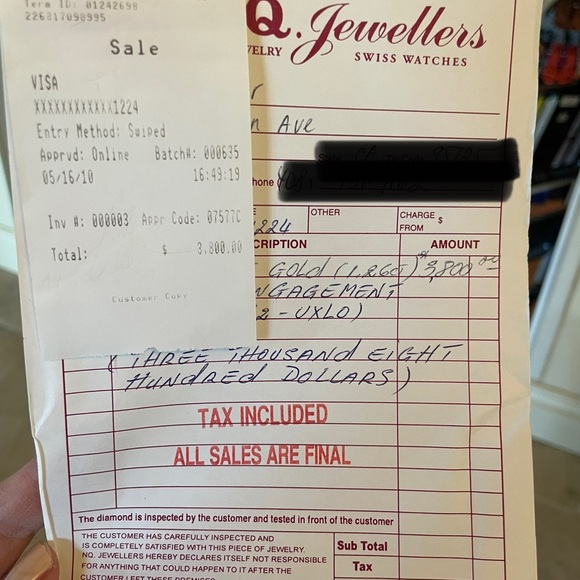 Term ID: 01242698
226317098995
Sale
VISA
XXXXXXXXXXXX1224
Entry Method: Swiped
Apprvd: Online Batch#: 000635
05/16/10 16:49:19
Inv #: 000003 Appr Code: 07577C
Total: $ 3,800.00
Customer Copy
Q. Jewellers
WELRY SWISS WATCHES
r
n AVE
hone
E OTHER CHARGE FROM $
224
CRIPTION AMOUNT
GOLD (1.26ct) $3,800.00
NGAGEMENT
2-UXLO)
(THREE THOUSAND EIGHT
HUNDRED DOLLARS)
TAX INCLUDED
ALL SALES ARE FINAL
The diamond is inspected by the customer and tested in front of the customer
THE CUSTOMER HAS CAREFULLY INSPECTED AND
IS COMPLETELY SATISFIED WITH THIS PIECE OF JEWELRY.
NQ. JEWELLERS HEREBY DECLARES ITSELF NOT RESPONSIBLE
FOR ANYTHING THAT COULD HAPPEN TO IT AFTER THE
CUSTOMER LEFT THESE PREMISES
Sub Total
Tax